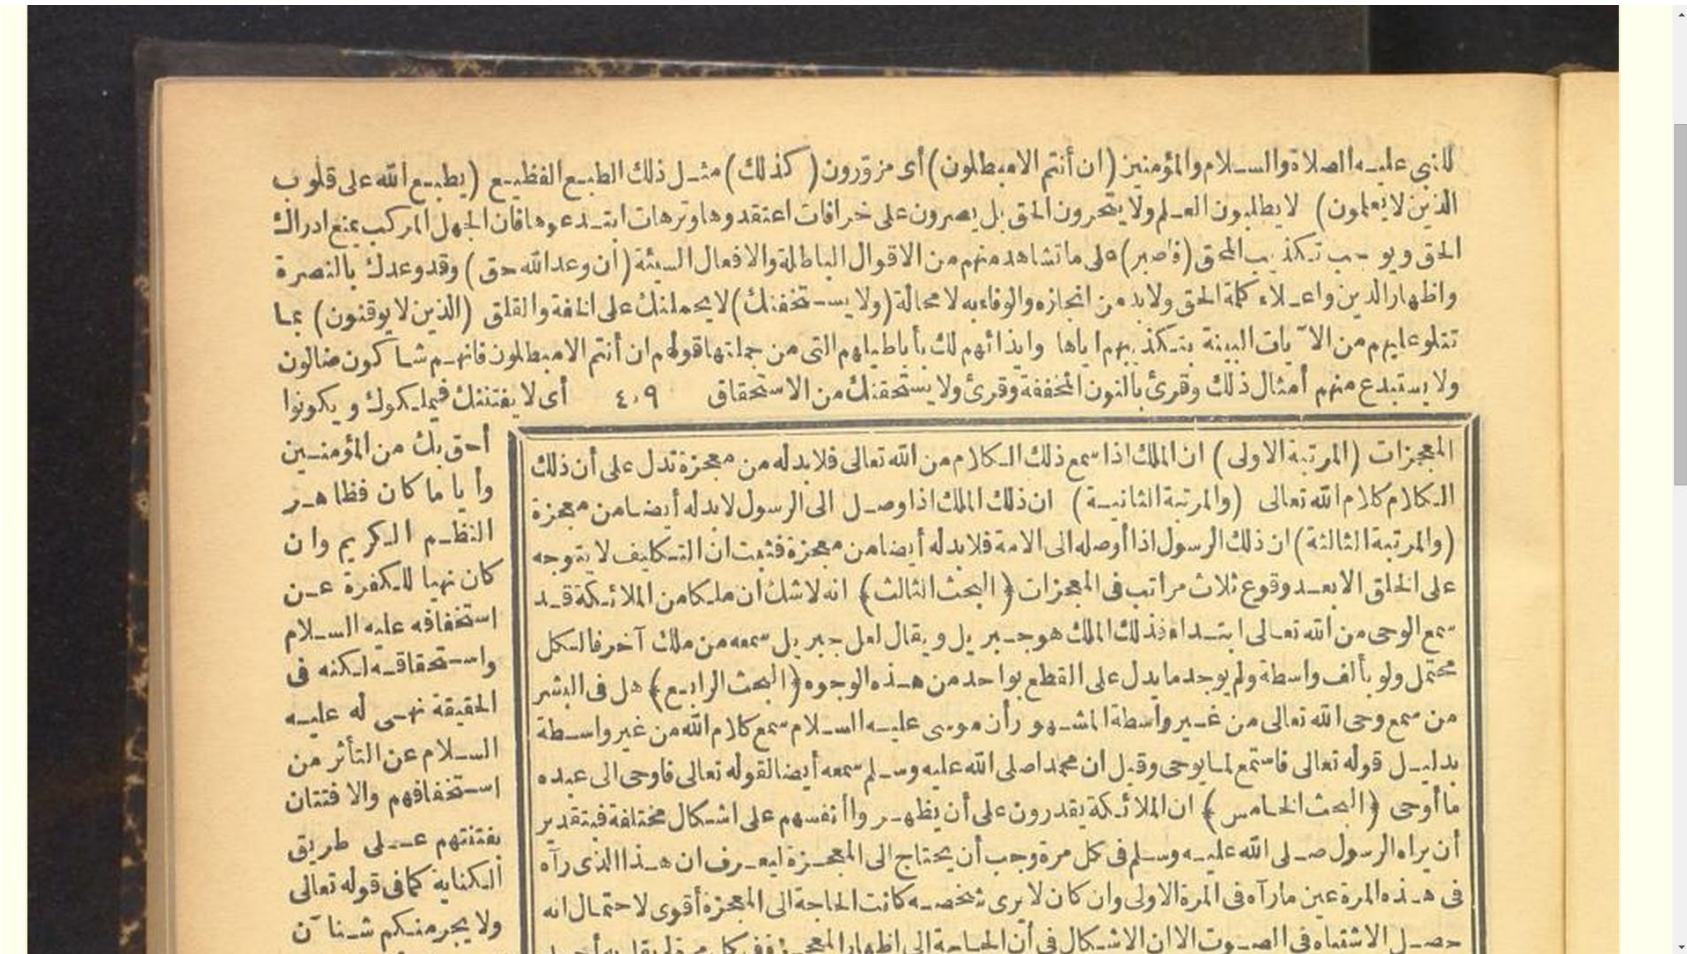 للنبي عليه الصلاة والسلام والمؤمنين (ان أنتم الامبطلون) أى مزورون (كذلك) مثل ذلك الطبع الفظيع (يطبع الله على قلوب
الذين لا يعلمون) لا يطلبون العلم ولا يتحرون الحق بل يصرون على خرافات اعتقدوها وترهات ابتدعوها فان الجهل المركب يمنع ادراك
الحق ويوجب تكذيب المحق (فاصبر) على ما تشاهد منهم من الاقوال الباطلة والافعال السيئة (ان وعد الله حق) وقد وعدك بالنصرة
واظهار الدين واعلاء كلمة الحق ولا بد من انجازه والوفاء به لا محالة (ولا يستخفنك) لا يحملنك على الخفة والقلق (الذين لا يوقنون) بما
تتلو عليهم من الآيات البينة بتكذيبهم اياها وايذائهم لك بأباطيلهم التى من جملتها قولهم ان أنتم الامبطلون فانهم شاكون ضالون
ولا يستبدع منهم أمثال ذلك وقرئ بالنون المخففة وقرئ ولا يستحقنك من الاستحقاق ٤٠٩ أى لا يفتننك فيملكوك و يكونوا
أحق بك من المؤمنين
وأيا ما كان فظاهر
النظم الكريم وان
كان نهيا للكفرة عن
استخفافه عليه السلام
واستحقاقه لكنه فى
الحقيقة نهى له عليه
السلام عن التأثر من
استخفافهم والافتتان
بفتنتهم على طريق
الكناية كما فى قوله تعالى
ولا يجرمنكم شنآن
المعجزات (المرتبة الاولى) ان الملك اذا سمع ذلك الكلام من الله تعالى فلا بد له من معجزة تدل على أن ذلك
الكلام كلام الله تعالى (والمرتبة الثانية) ان ذلك الملك اذا وصل الى الرسول لا بد له أيضا من معجزة
(والمرتبة الثالثة) ان ذلك الرسول اذا أوصله الى الامة فلا بد له أيضا من معجزة فثبت ان التكليف لا يتوجه
على الخلق الا بعد وقوع ثلاث مراتب فى المعجزات (البحث الثالث) انه لا شك ان ملكا من الملائكة قد
سمع الوحى من الله تعالى ابتداء فذلك الملك هو جبريل ويقال لعل جبريل سمعه من ملك آخر فالكل
محتمل ولو بألف واسطة ولم يوجد ما يدل على القطع بواحد من هذه الوجوه (البحث الرابع) هل فى البشر
من سمع وحى الله تعالى من غير واسطة المشهور أن موسى عليه السلام سمع كلام الله من غير واسطة
بدليل قوله تعالى فاستمع لما يوحى وقيل ان محمدا صلى الله عليه وسلم سمعه أيضا لقوله تعالى فاوحى الى عبده
ما أوحى (البحث الخامس) ان الملائكة يقدرون على أن يظهروا أنفسهم على اشكال مختلفة فبتقدير
أن يراه الرسول صلى الله عليه وسلم فى كل مرة وجب أن يحتاج الى المعجزة ليعرف ان هذا الذى رآه
فى هذه المرة عين ما رآه فى المرة الاولى وان كان لا يرى شخصه كانت الحاجة الى المعجزة أقوى لاحتمال انه
حصل الاشتباه فى الصوت الا ان الاشكال فى أن الحاجة الى اظهار المعجزة فى كل مرة لم يقل به أحد